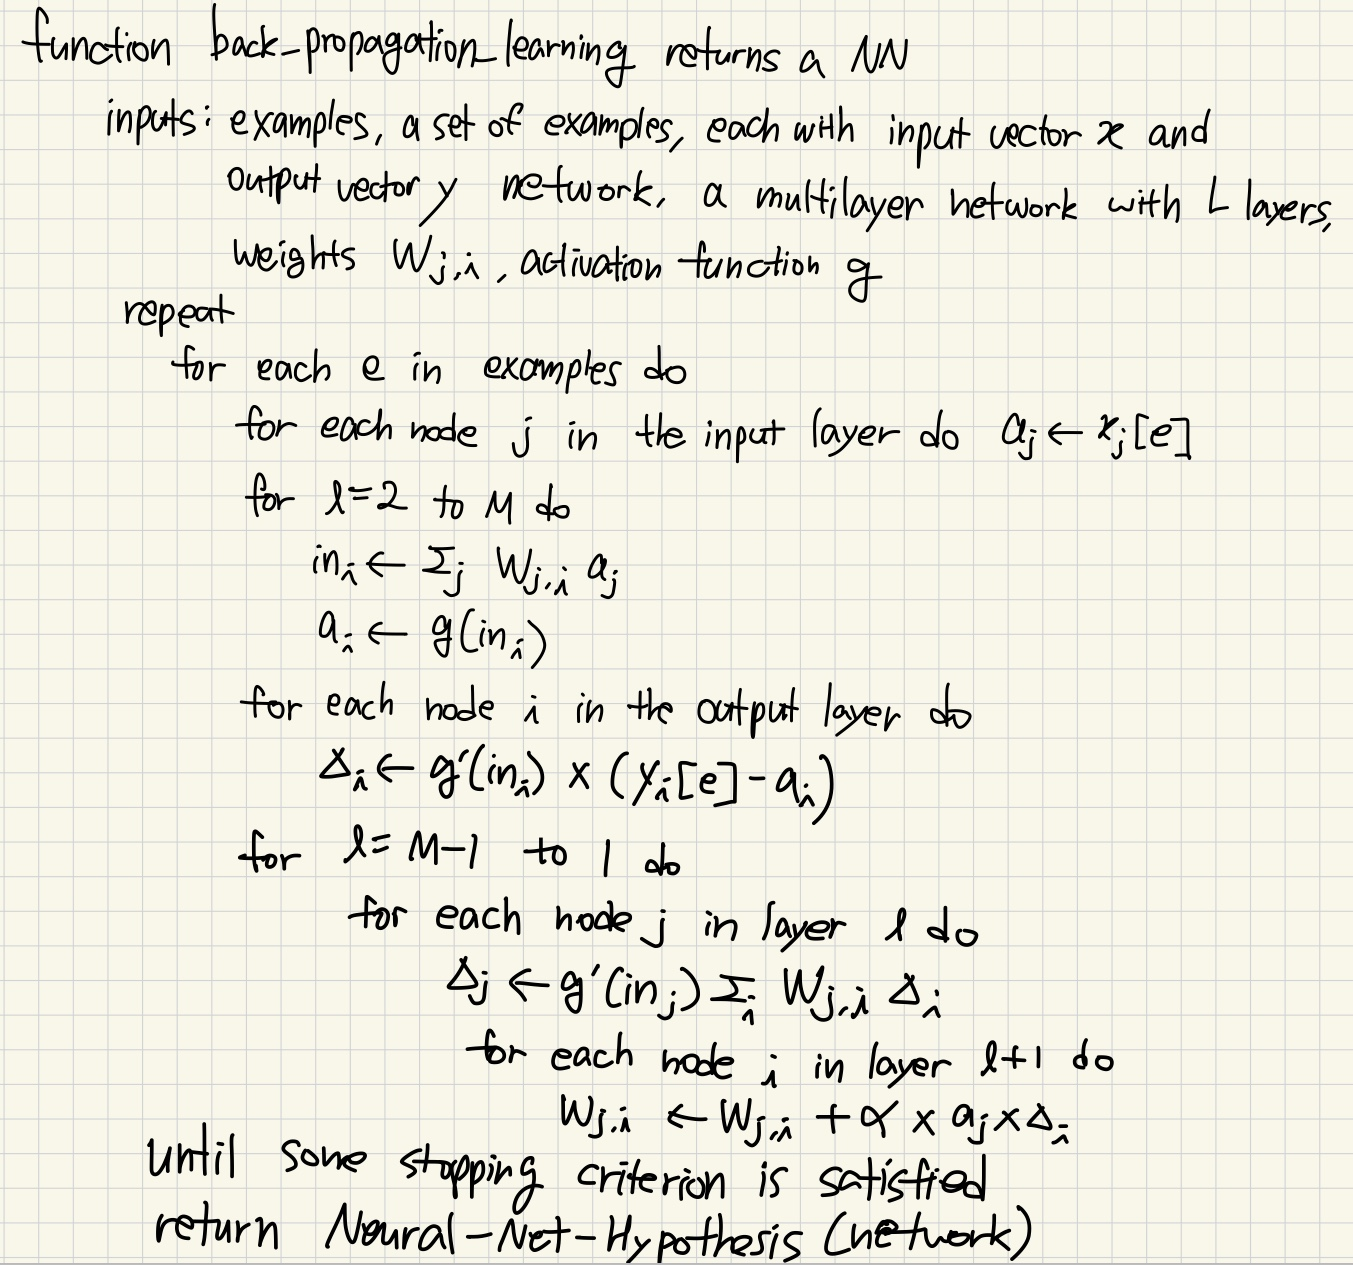 function back-propagation-learning returns a NN
inputs: examples, a set of examples, each with input vector x and
output vector y network, a multilayer network with L layers,
weights W_{j,i}, activation function g
repeat
for each e in examples do
for each node j in the input layer do a_j ← x_j[e]
for l=2 to M do
in_i ← Σ_j W_{j,i} a_j
a_i ← g(in_i)
for each node i in the output layer do
Δ_i ← g'(in_i) × (y_i[e] - a_i)
for l= M-1 to 1 do
for each node j in layer l do
Δ_j ← g'(in_j) Σ_i W_{j,i} Δ_i
for each node i in layer l+1 do
W_{j,i} ← W_{j,i} + α × a_j × Δ_i
until some stopping criterion is satisfied
return Neural-Net-Hypothesis (network)